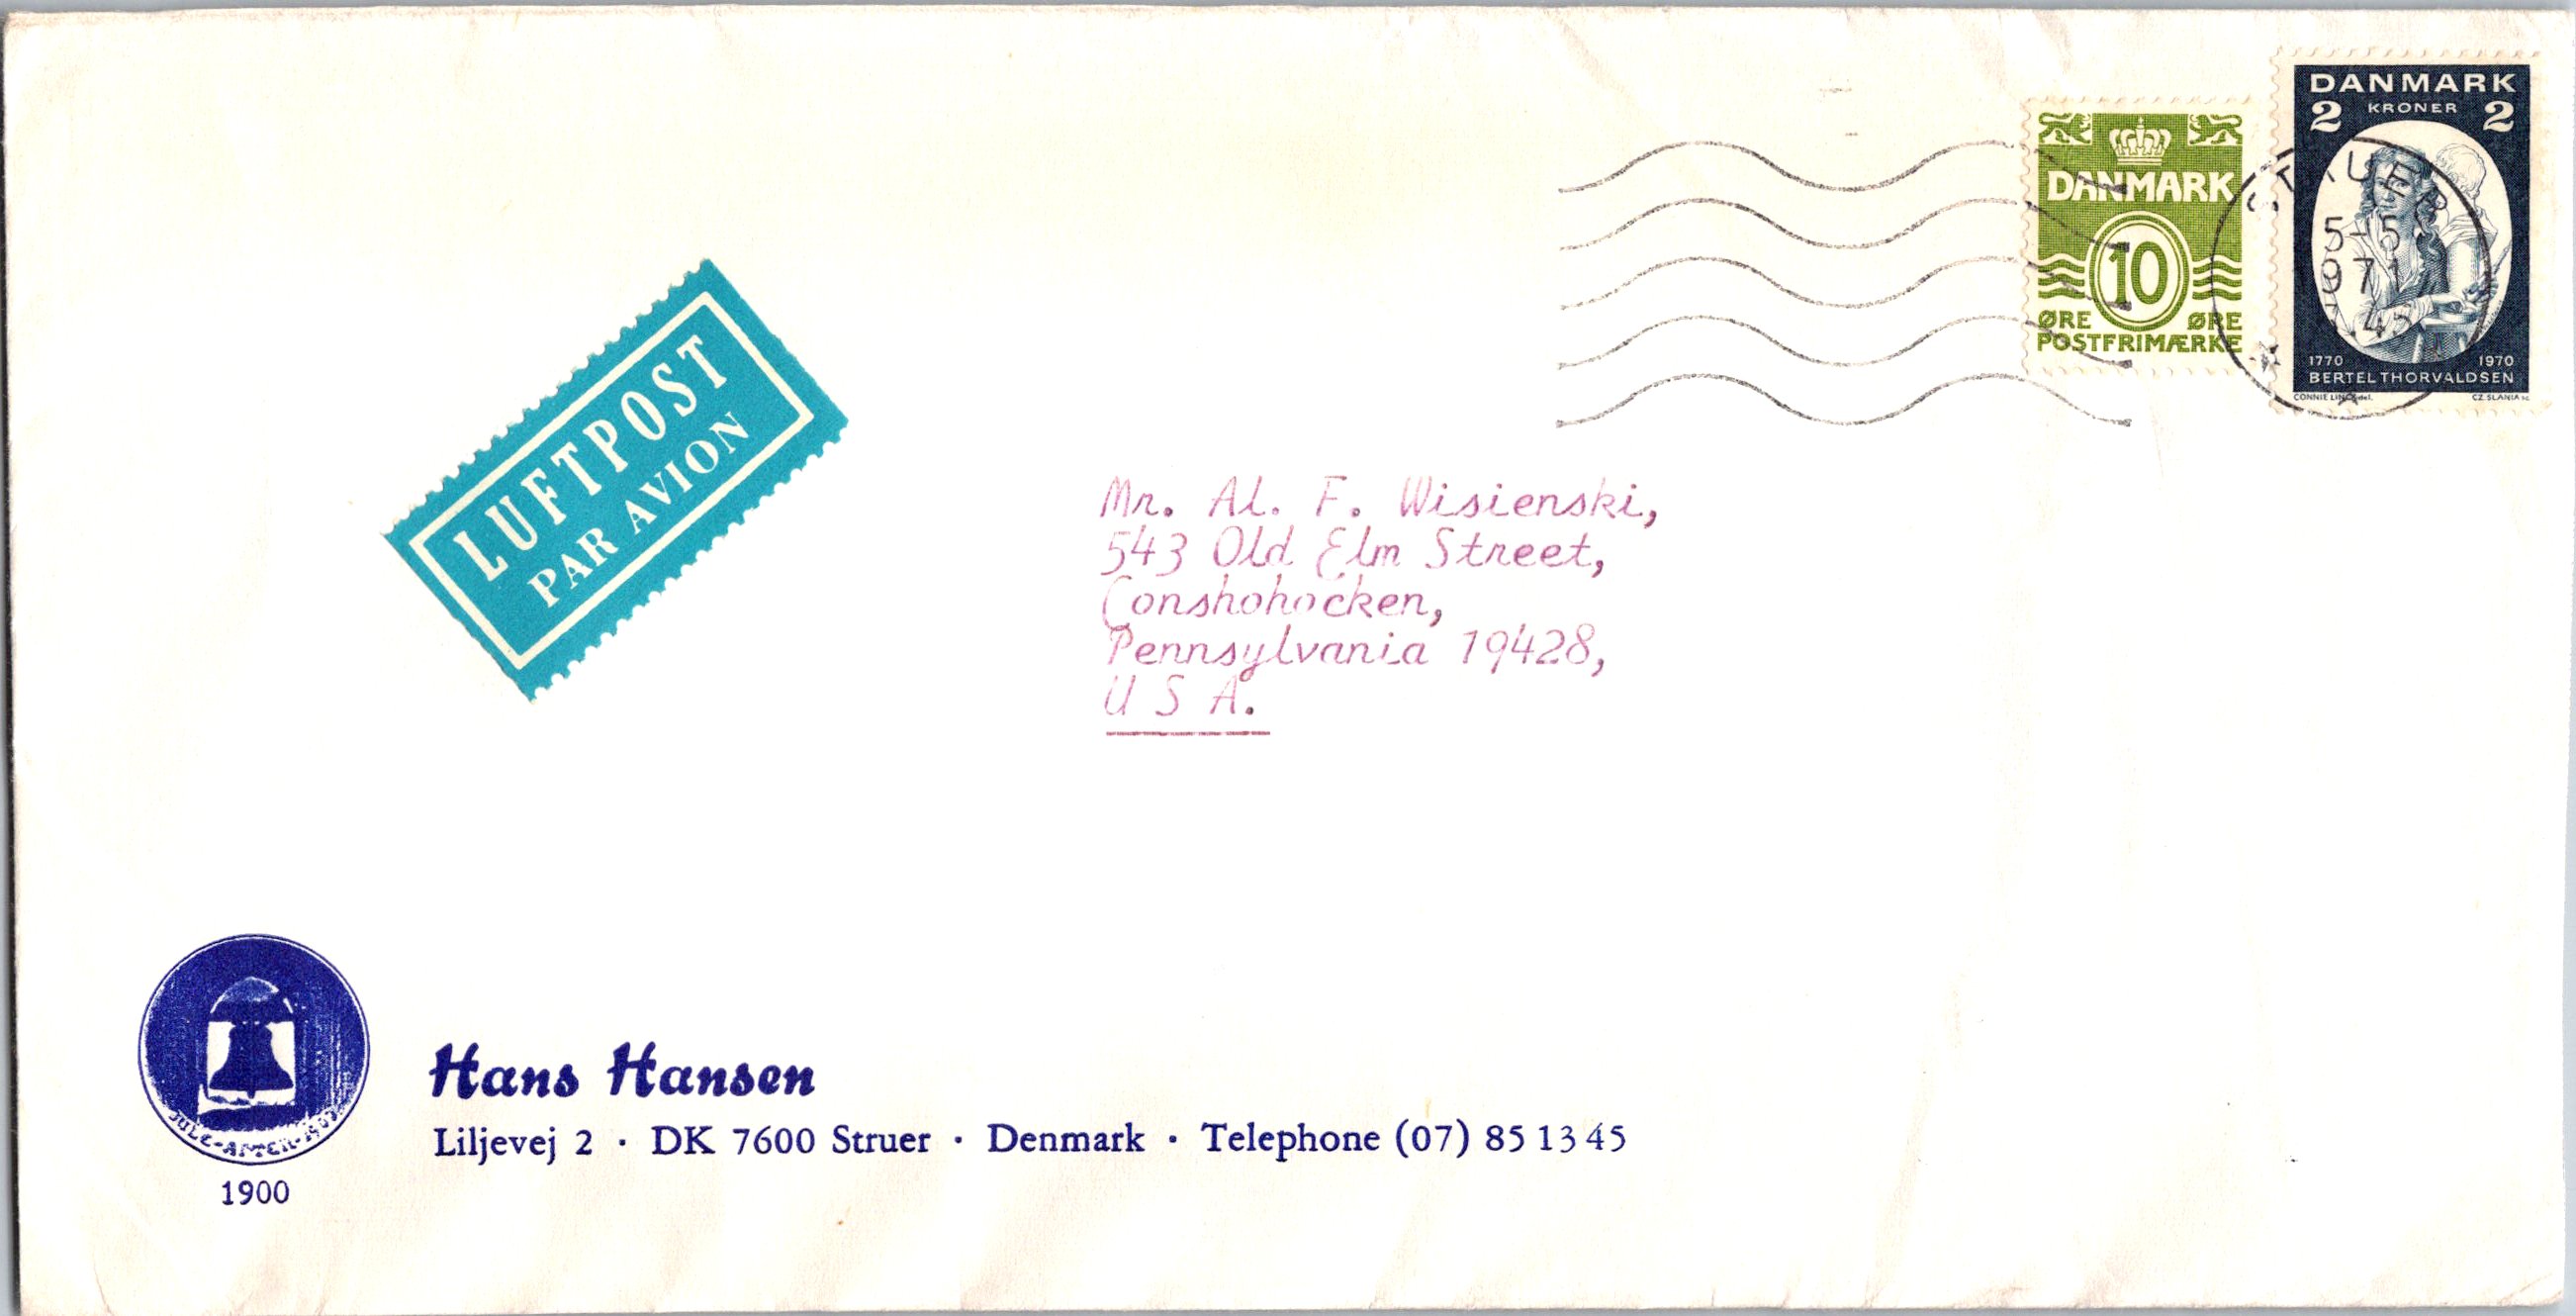 DANMARK
2 KRONER 2
1770 1970
BERTEL THORVALDSEN
CONNIE LINCK del. CZ. SLANIA sc.
DANMARK
10
ØRE ØRE
POSTFRIMÆRKE
STRUER
5-5
971
LUFTPOST
PAR AVION
Mr. Al. F. Wisienski,
543 Old Elm Street,
Conshohocken,
Pennsylvania 19428,
U S A.
1900
Hans Hansen
Liljevej 2 · DK 7600 Struer · Denmark · Telephone (07) 85 13 45